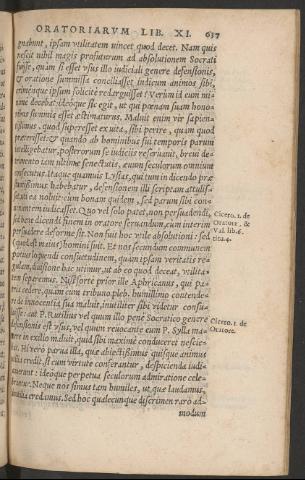 ORATORIARVM LIB. XI. 637
gnabunt, ipsam vtilitatem uincet quod decet. Nam quis
nescit nihil magis profuturum ad absolutionem Socrati
fuisse, quàm si esset vsus illo iudiciali genere defensionis,
& oratione summissa conciliasset iudicum animos sibi,
crimenque ipsum solicitè redarguisset? Verùm id eum mi-
nimè decebat: ideóque sic egit, ut qui pœnam suam hono-
ribus summis esset æstimaturus. Maluit enim vir sapien-
tissimus, quod superesset ex uita, sibi perire, quàm quod
præterisset. & quando ab hominibus sui temporis parum
intelligebatur, posterorum se iudicijs reseruauit, breui de-
trimento iam ultimæ senectutis, æuum seculorum omnium
consecutus. Itaque quamuis Lysias, qui tum in dicendo præ-
stantissimus habebatur, defensionem illi scriptam attulis-
set, uti ea noluit: cum bonam quidem, sed parum sibi con-
uenientem iudicasset. Quo vel solo patet, non persuadendi,
sed bene dicendi finem in oratore seruandum, cum interim
persuadere deforme sit. Non fuit hoc vtile absolutioni: sed
(quod est maius) homini fuit. Et nos secundum communem
potius loquendi consuetudinem, quàm ipsam veritatis re-
gulam, diuisione hac utimur, ut ab eo quod deceat, vtilita-
tem separemus. Nisi fortè prior ille Aphricanus, qui pa-
tria cedere, quàm cum tribuno pleb. humillimo contende-
re de innocentia sua maluit, inutiliter sibi videtur consu-
luisse: aut P. Rutilius vel quum illo penè Socratico genere
defensionis est vsus, vel quum reuocante eum P. Sylla ma-
nere in exilio maluit, quid sibi maximè conduceret nescie-
bat. Hi verò parua illa, quæ abiectissimus quisque animus
utilia credit, si cum virtute conferantur, despicienda iudi-
cauerunt: ideóque perpetua seculorum admiratione cele-
brantur. Neque nos simus tam humiles, ut quæ laudamus,
inutilia credamus. Sed hoc qualecunque discrimen rarò ad-
modum
Cicero. 1. de
Oratore, &
Val. lib. 6.
tit. 4.
Cicero. 1. de
Oratore.